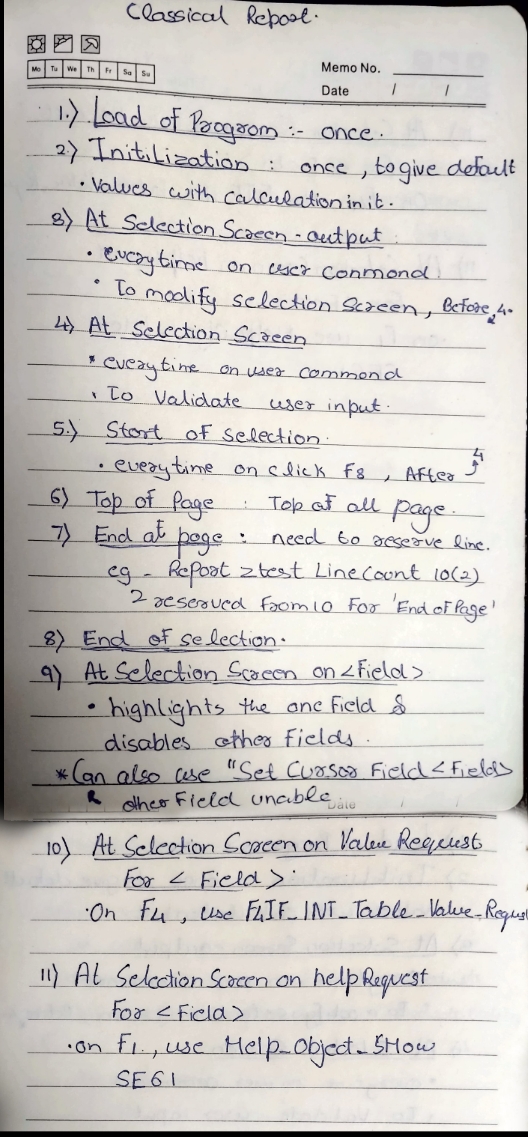 Classical Report.
Mo Tu We Th Fr Sa Su
Memo No.
Date / /
1.) Load of Program :- once.
2.) Initilization : once, to give default
• values with calculation in it.
3) At Selection Screen - output
• everytime on user commond
• To modify selection screen, Before 4.
4) At Selection Screen
• everytime on user commond
• To Validate user input.
5.) Start of selection.
• everytime on click F8, After 4
6) Top of Page : Top of all page.
7) End of page : need to reserve line.
eg - Report ztest Line Count 10(2)
2 reserved from 10 For 'End of Page'
8) End of selection.
9) At Selection Screen on <Field>
• highlights the one field &
disables other fields.
* Can also use "Set Cursor Field <Field>
& other Field unable
Date
10) At Selection Screen on Value Request
For < Field >
• On F4, use F4IF_INT_Table_Value_Reques
11) At Selection Screen on help Request
For <Field>
• on F1., use Help_Object_SHow
SE61